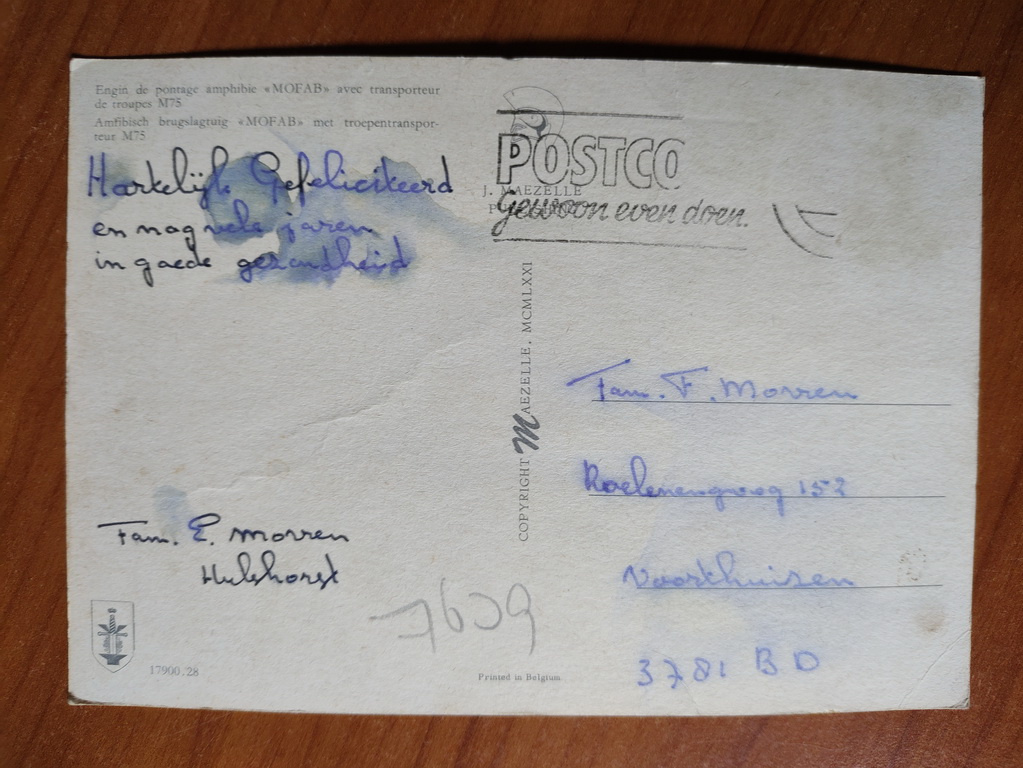 Engin de pontage amphibie «MOFAB» avec transporteur
de troupes M75
Amfibisch brugslagtuig «MOFAB» met troepentranspor-
teur M75
Hartelijk Gefeliciteerd
en nog vele jaren
in goede gezondheid
Fam. E. Morren
Hulshorst
17900.28
7609
Printed in Belgium
COPYRIGHT MAEZELLE, MCMLXXI
POSTCO
Gewoon even doen.
J. MAEZELLE
Fam. F. Morren
Voorthuizen
3781 BD